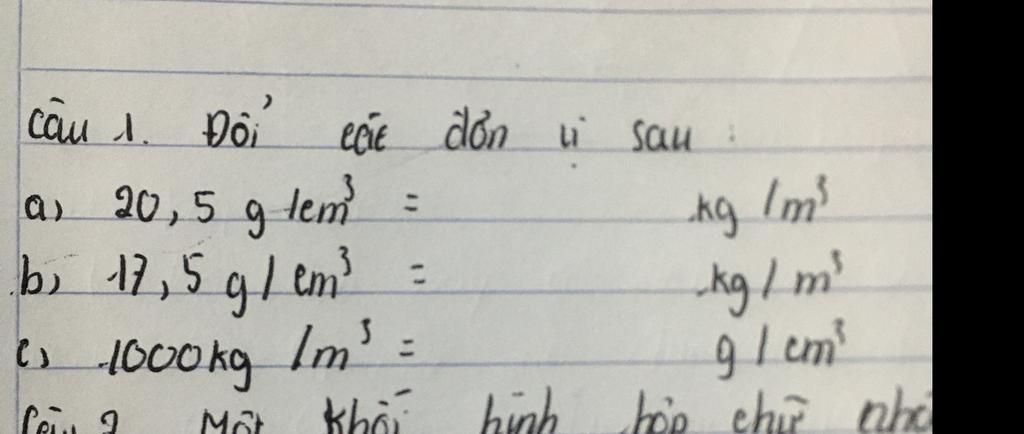 Câu 1. Đổi các đơn vị sau :
a) 20,5 g/cm³ = kg/m³
b) 17,5 g/cm³ = kg/m³
c) 1000kg/m³ = g/cm³
Câu 2. Một khối hình hộp chữ nhâ